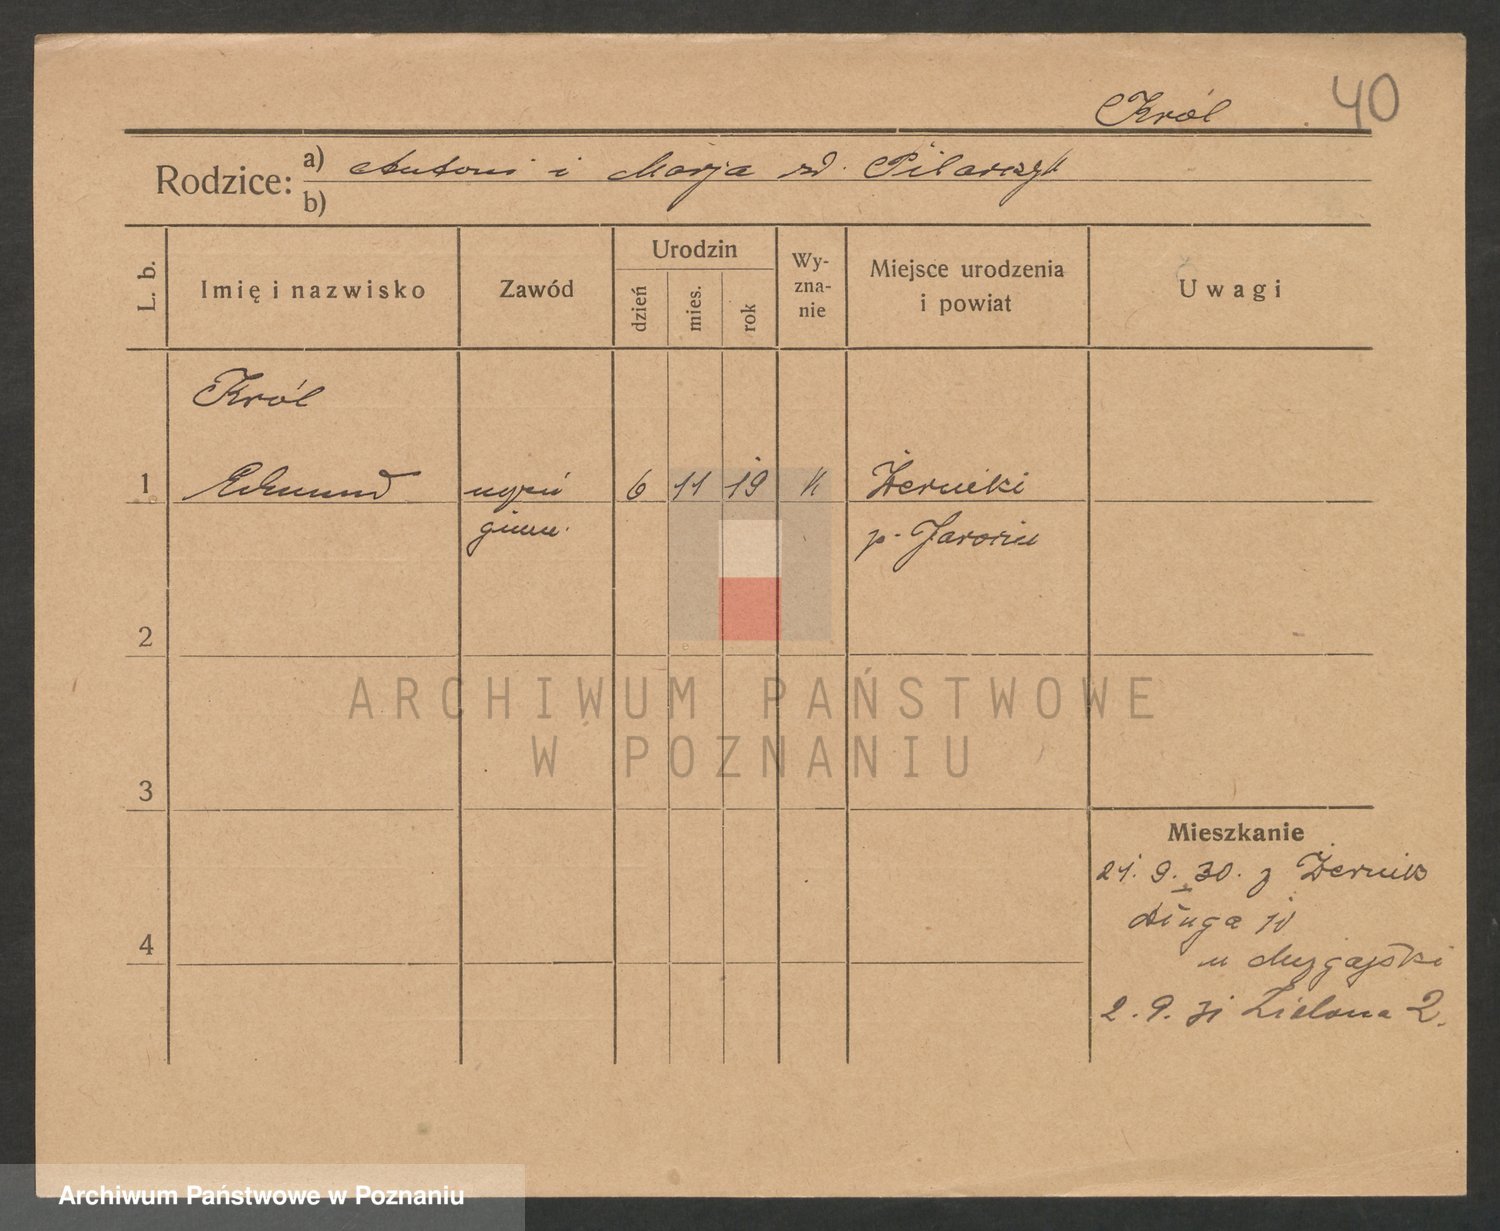 Król
40
Rodzice: a) Antoni i Marja zd. Pilarczyk
b)
L. b.
Imię i nazwisko
Zawód
Urodzin
dzień
mies.
rok
Wy-
zna-
nie
Miejsce urodzenia
i powiat
Uwagi
Król
1 Edmund uczeń 6 11 19 k Żerniki
gimn. p. Jarocin
2
ARCHIWUM PAŃSTWOWE
W POZNANIU
3
Mieszkanie
21. 9. 30. z Żernik
długa
4
u
2. 9. 31 Zielona 2.
Archiwum Państwowe w Poznaniu